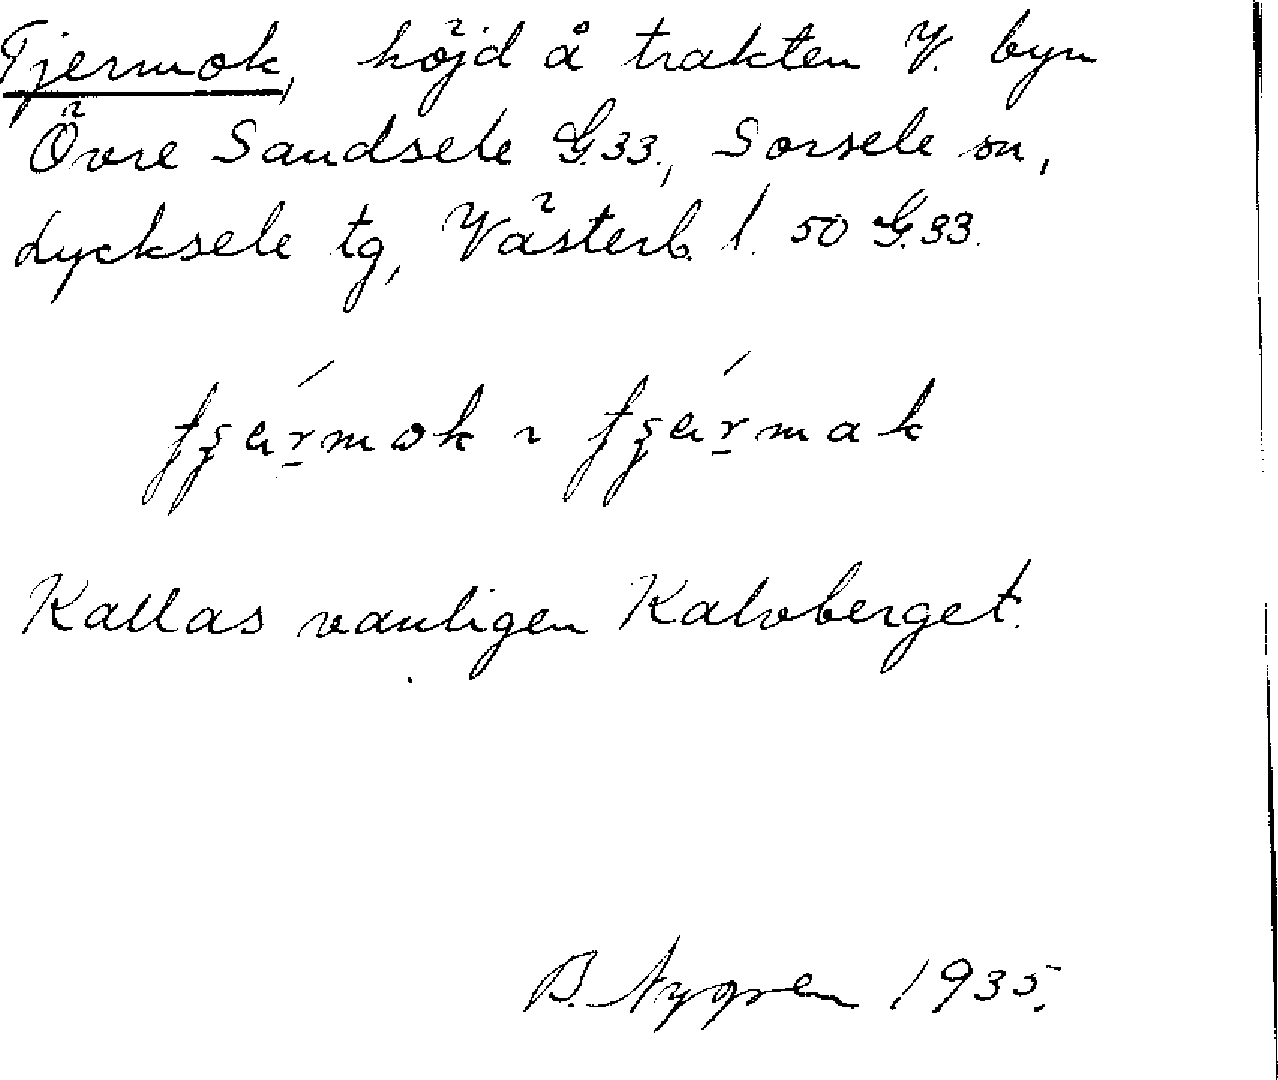 Tjermok, höjd å trakten V. byn
Övre Sandsele G.33., Sorsele sn,
Lycksele tg, Västerb. l. 50 G.33.
Kallas vanligen Kalvberget.
B. Nygren 1935.